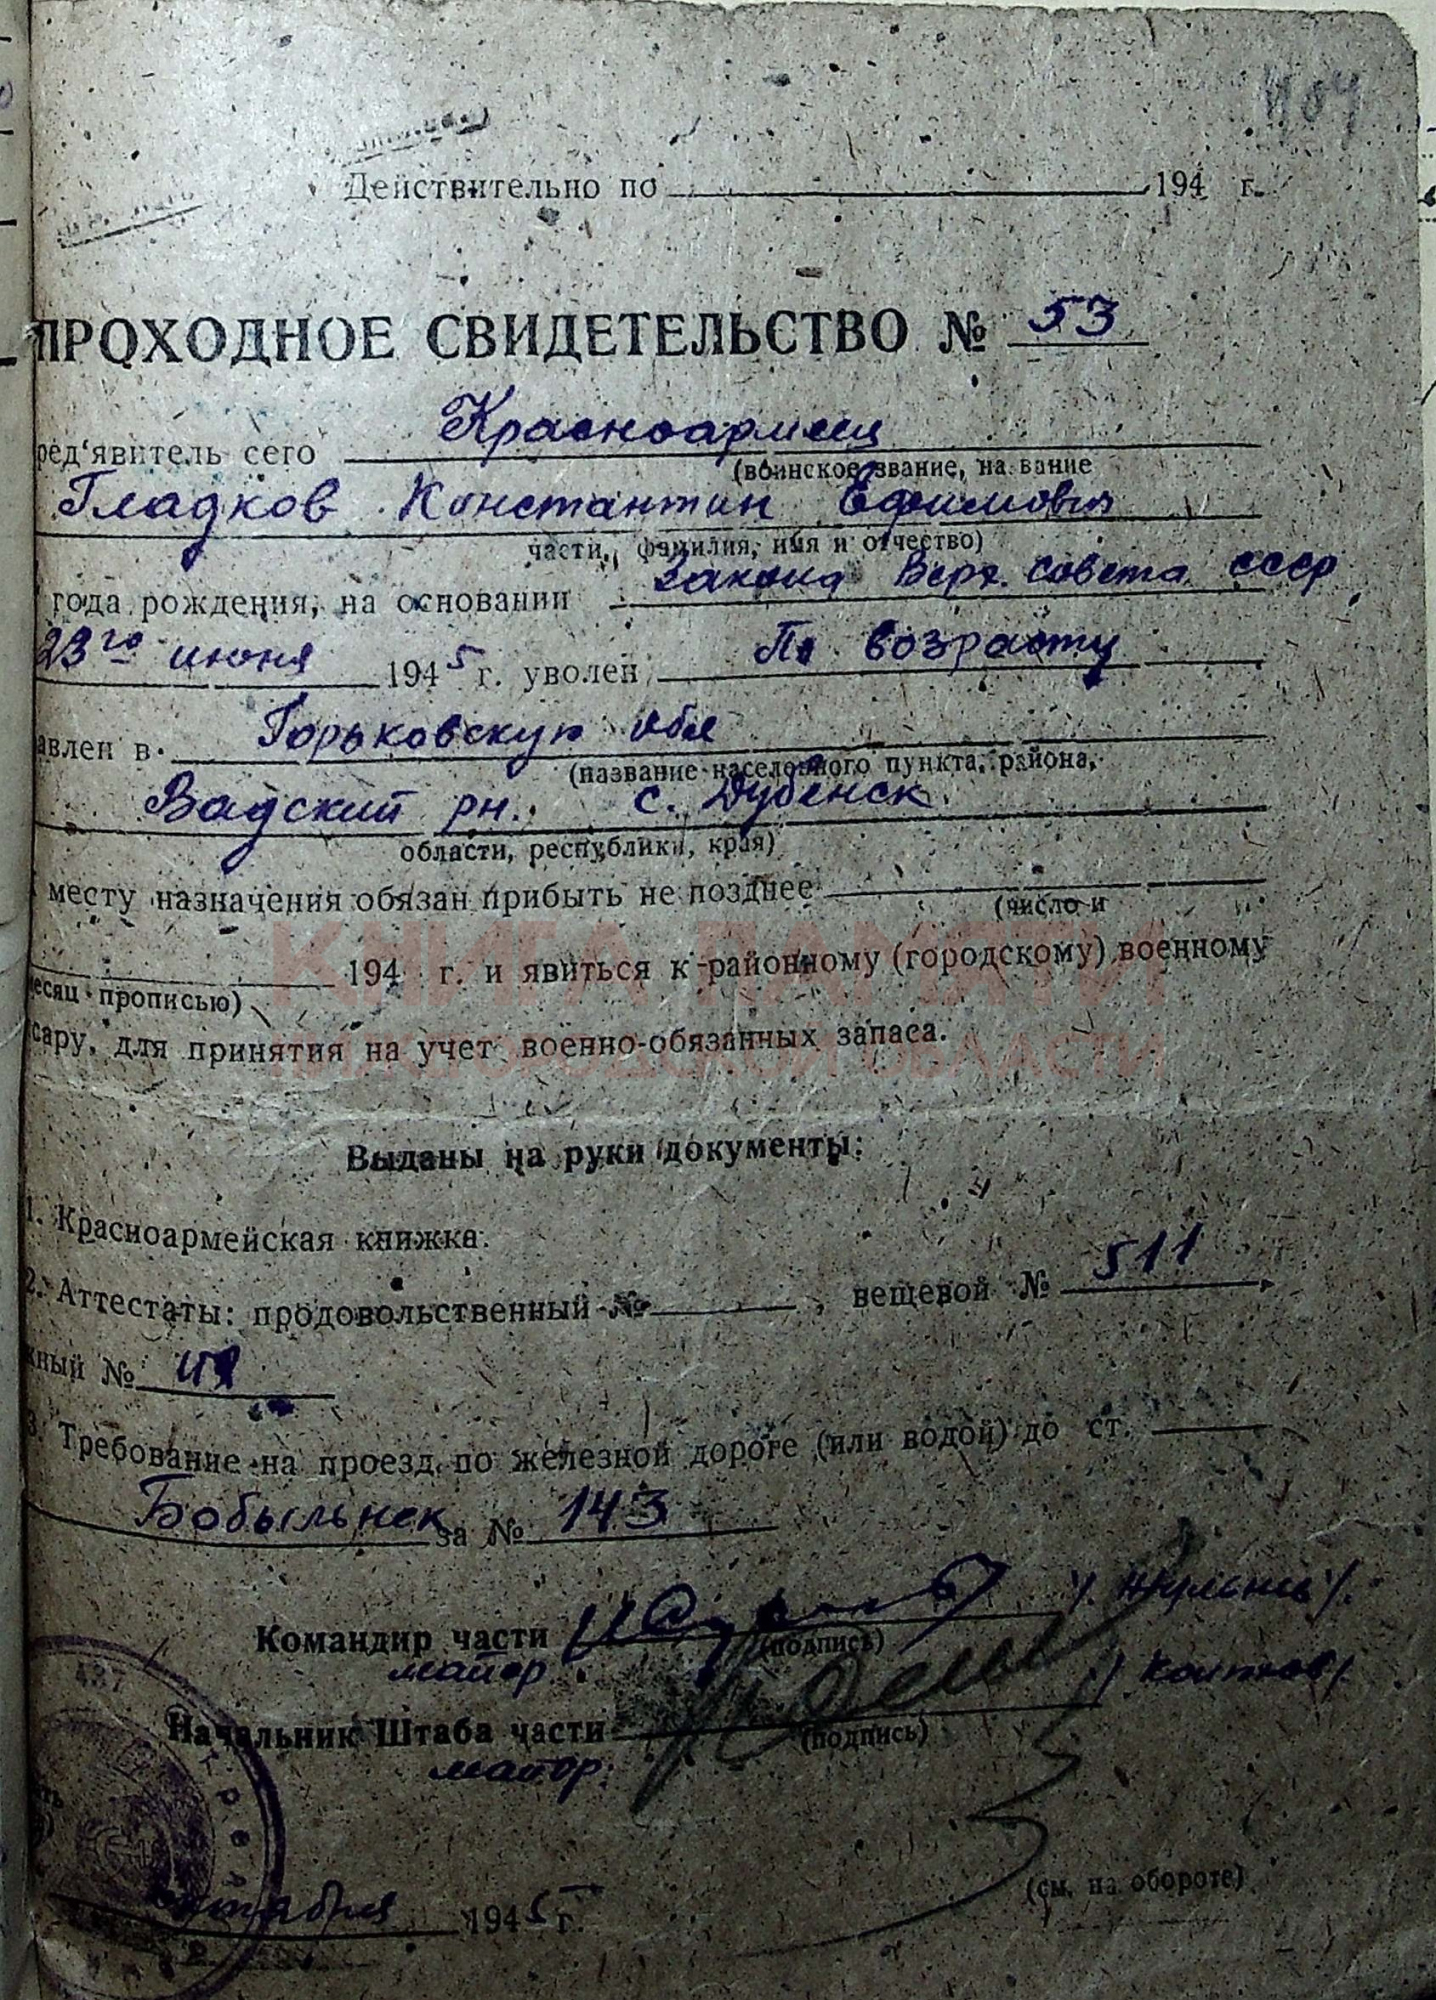 1104
Действительно по 194 г.
ПРОХОДНОЕ СВИДЕТЕЛЬСТВО № 53
ред'явитель сего Красноармеец
(воинское звание, на вание
Гладков Константин Ефимович
части, фамилия, имя и отчество)
года рождения, на основании Закона Верх. Совета СССР
23го июня 1945 г. уволен По возрасту
авлен в Горьковскую обл
(название населенного пункта, района,
Вадский рн. с. Дубенск
области, республики, края)
месту назначения обязан прибыть не позднее
(число и
194 г. и явиться к районному (городскому) военному
есяц прописью)
сару, для принятия на учет военно-обязанных запаса.
КНИГА ПАМЯТИ
НИЖЕГОРОДСКОЙ ОБЛАСТИ
Выданы на руки документы:
1. Красноармейская книжка.
2. Аттестаты: продовольственный № , вещевой № 511
жный №
3. Требование на проезд по железной дороге (или водой) до ст.
Бобыльнек за № 143
Командир части
(подпись)
майор
Начальник Штаба части
(подпись)
майор.
487
(см. на обороте)
1945 г.